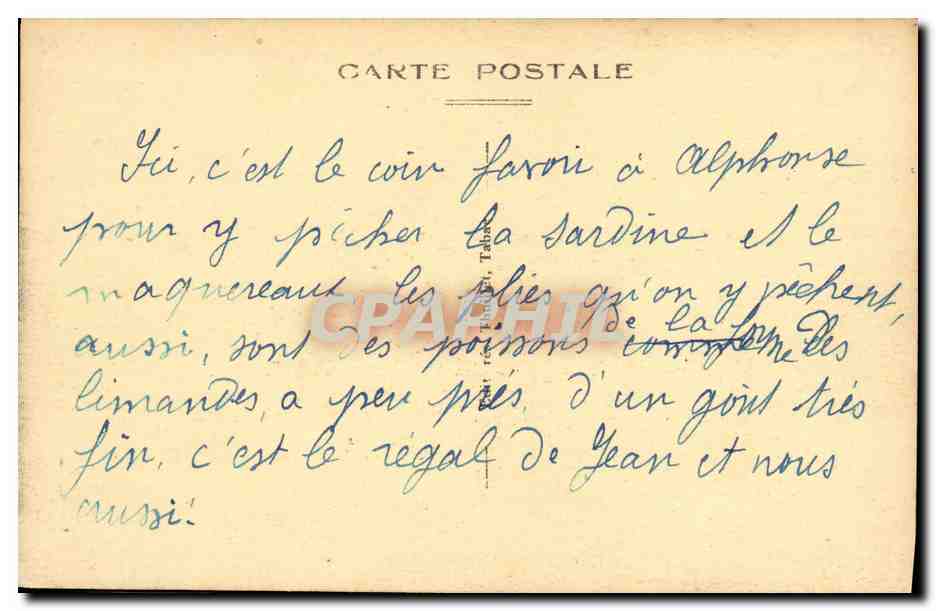 CARTE POSTALE
Ici, c'est le coin favori à Alphonse
pour y pêcher la sardine et le
maquereaux les plies qu'on y pêchent,
aussi, sont des poissons comme de la forme des
limandes, a peu près, d'un goût très
fin, c'est le régal de Jean et nous
aussi.
CPAPHIL
Tabac